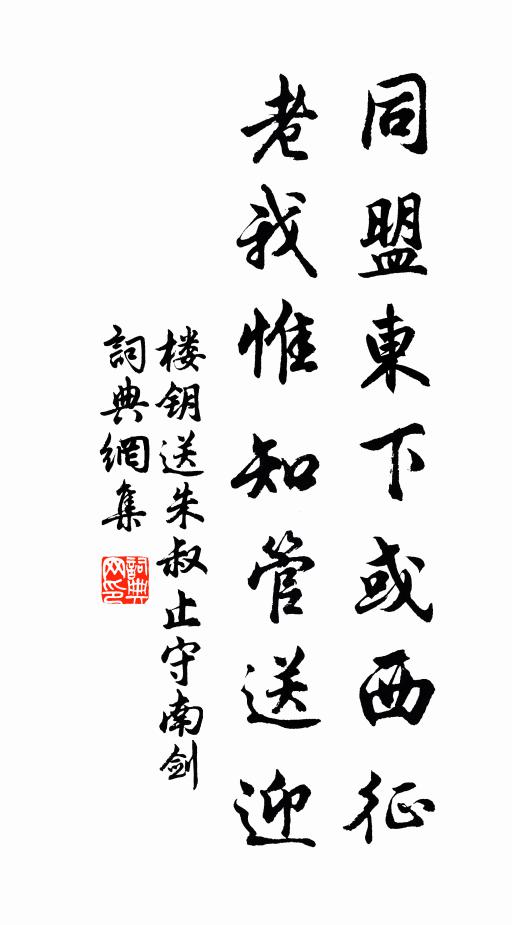 同盟東下或西征
老我惟知管送迎
楼钥送朱叔止守南剑
詞典網集
詞典網印